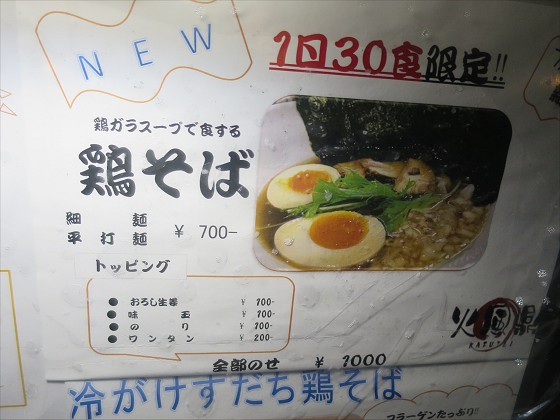 NEW
1日30食限定!!
鶏ガラスープで食する
鶏そば
細麺
平打麺 ¥ 700-
トッピング
● おろし生姜 ¥ 100-
● 味玉 ¥ 100-
● のり ¥ 100-
● ワンタン ¥ 200-
全部のせ ¥ 1000
火風鼎
KAFUTEI
冷がけすだち鶏そば
コラーゲンたっぷり